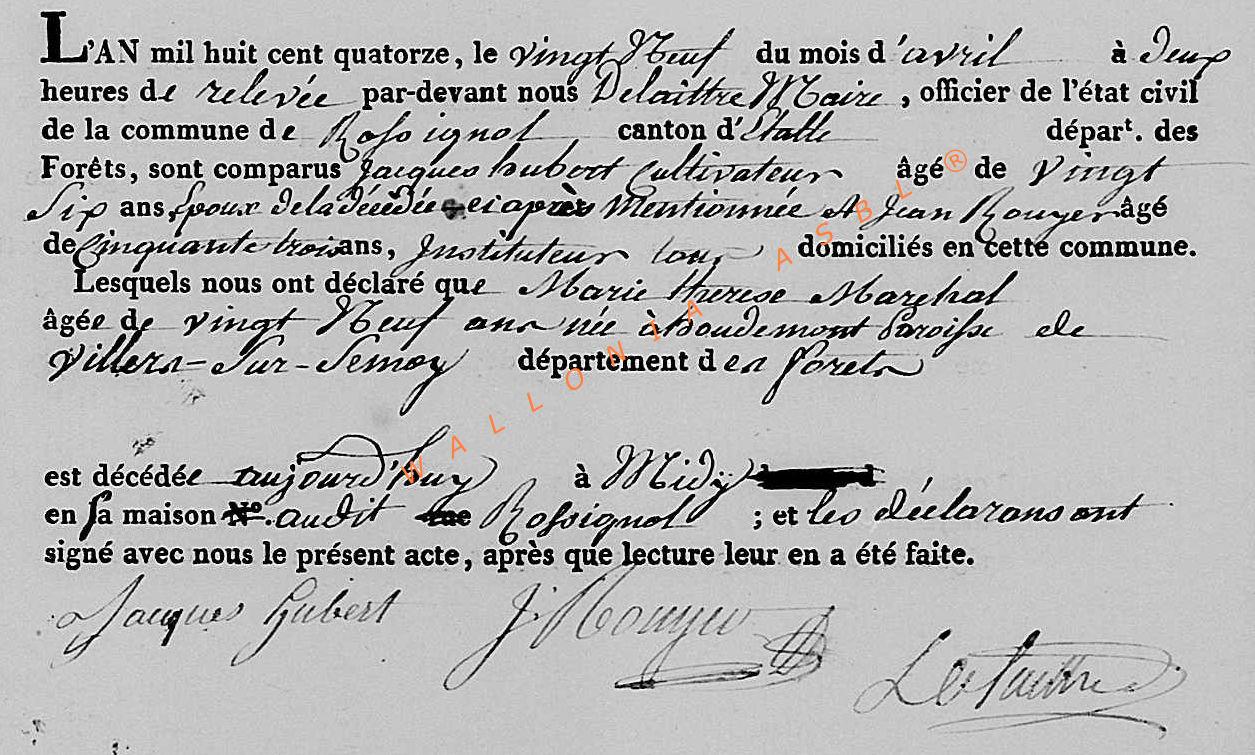 L'AN mil huit cent quatorze, le vingt Neuf du mois d'avril à deux
heures de relevée par-devant nous Delaittre Maire, officier de l'état civil
de la commune de Rossignol canton d'Etalle départ. des
Forêts, sont comparus Jacques hubert Cultivateur âgé de vingt
Six ans, Epoux de la décédée ci après Mentionnée et Jean Rouyer âgé
de Cinquante trois ans, Instituteur tous domiciliés en cette commune.
Lesquels nous ont déclaré que Marie therese Marchal
âgée de vingt Neuf ans née à houdemont Paroisse de
Villers-Sur-Semoy département des forets
est décédée aujourd'huy à Midy
en sa maison N°. audit rue Rossignol ; et les déclarans ont
signé avec nous le présent acte, après que lecture leur en a été faite.
Jacques hubert J: Rouyer
Delaittre
WALLONIA ASBL®